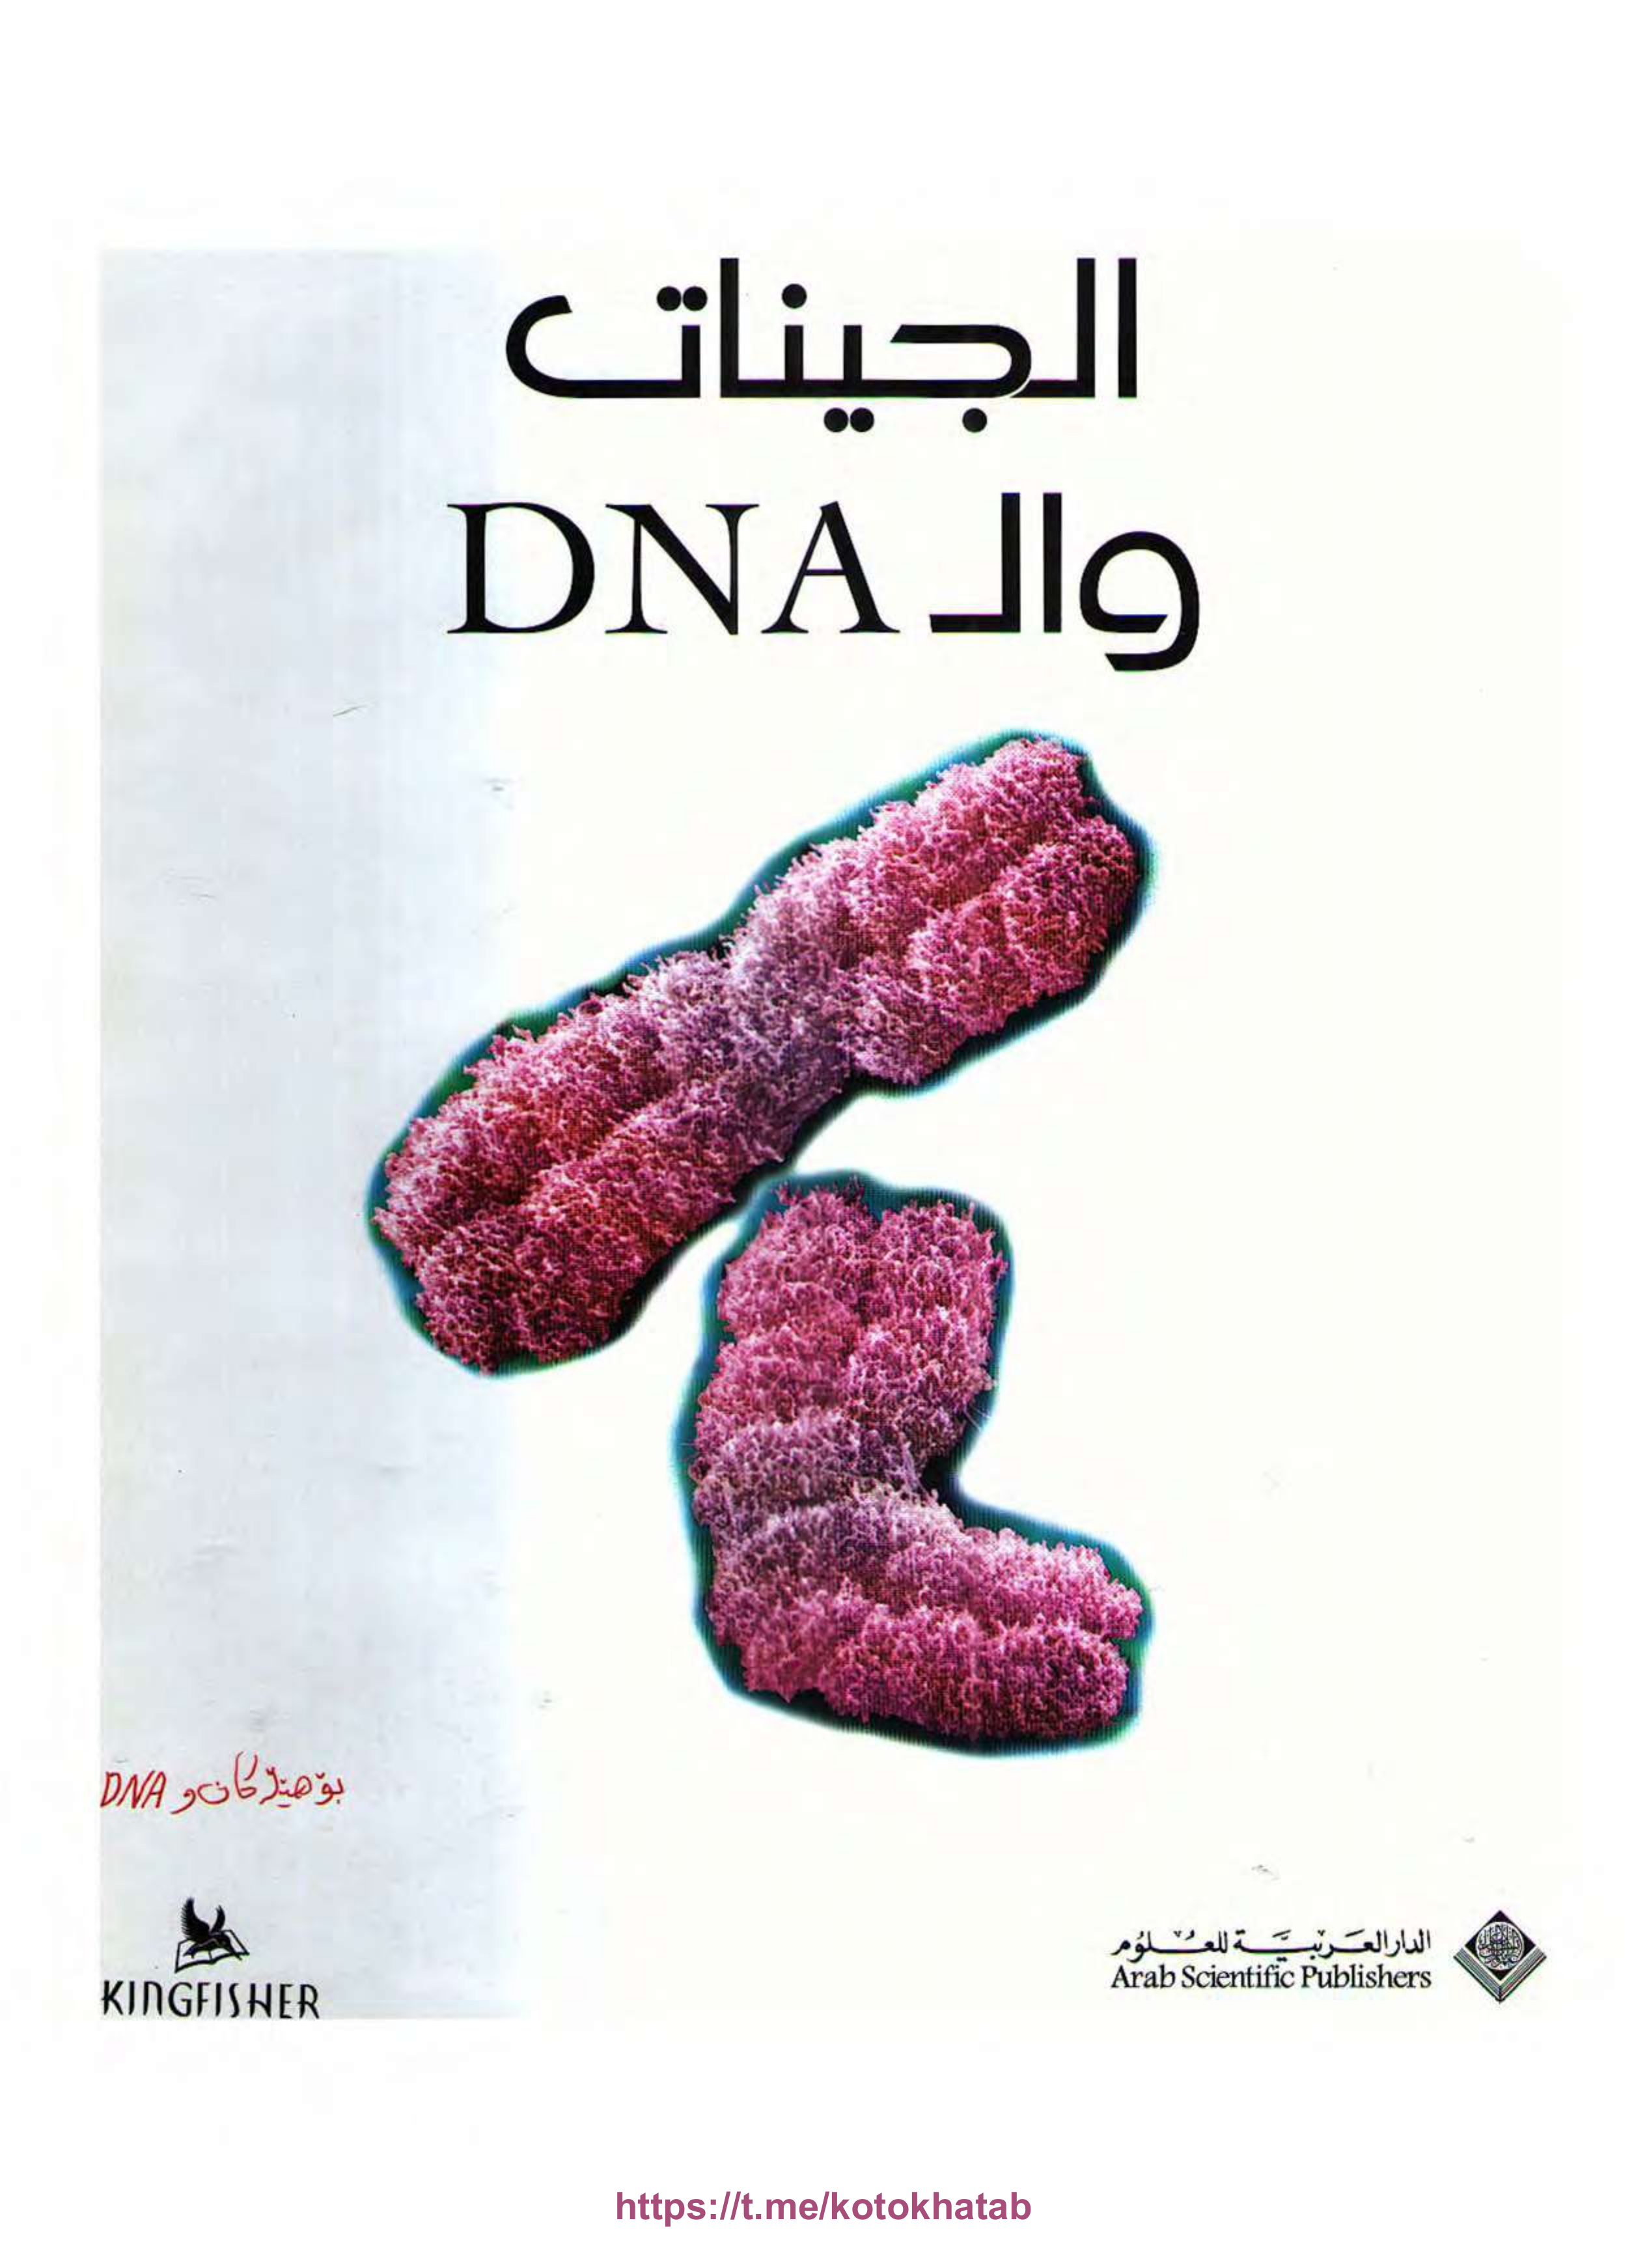 الجينات
والـ DNA
بۆهێڵەکان و DNA
KINGFISHER
الدار العربية للعلوم
Arab Scientific Publishers
https://t.me/kotokhatab